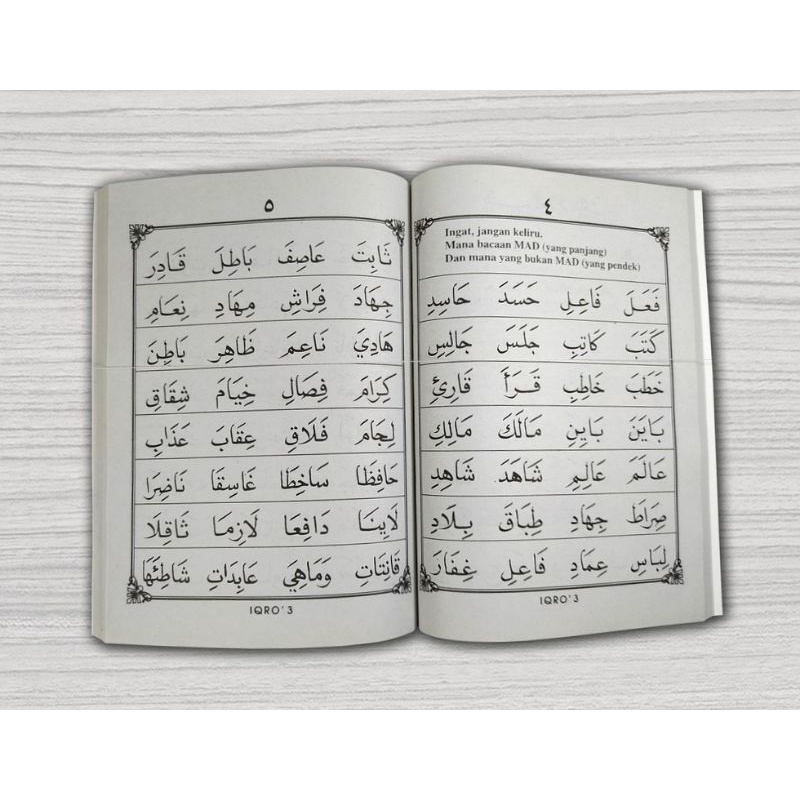 ٤
Ingat, jangan keliru.
Mana bacaan MAD (yang panjang)
Dan mana yang bukan MAD (yang pendek)
فَعَلَ فَاعِلِ حَسَدَ حَاسِدِ
كَتَبَ كَاتِبِ جَلَسَ جَالِسِ
خَطَبَ خَاطِبِ قَرَأَ قَارِئِ
بَايَنَ بَايِنِ مَالَكَ مَالِكِ
عَالَمَ عَالِمِ شَاهَدَ شَاهِدِ
صِرَاطَ جِهَادِ طِبَاقَ بِلَادِ
لِبَاسِ عِمَادِ فَاعِلِ غِفَارَ
IQRO' 3
٥
ثَابِتَ عَاصِفَ بَاطِلَ قَادِرَ
جِهَادَ فِرَاشِ مِهَادِ نِعَامِ
هَادِيَ نَاعِمَ ظَاهِرَ بَاطِنَ
كِرَامَ فِصَالِ خِيَامَ شِقَاقِ
لِجَامَ فَلَاقِ عِقَابَ عَذَابِ
حَافِظَا سَاخِطَا غَاسِقَا نَاضِرَا
لَابِنَا دَافِعَا لَازِمَا ثَاقِلَا
قَانِتَاتِ وَمَاهِيَ عَابِدَاتِ شَاطِئَهَا
IQRO' 3